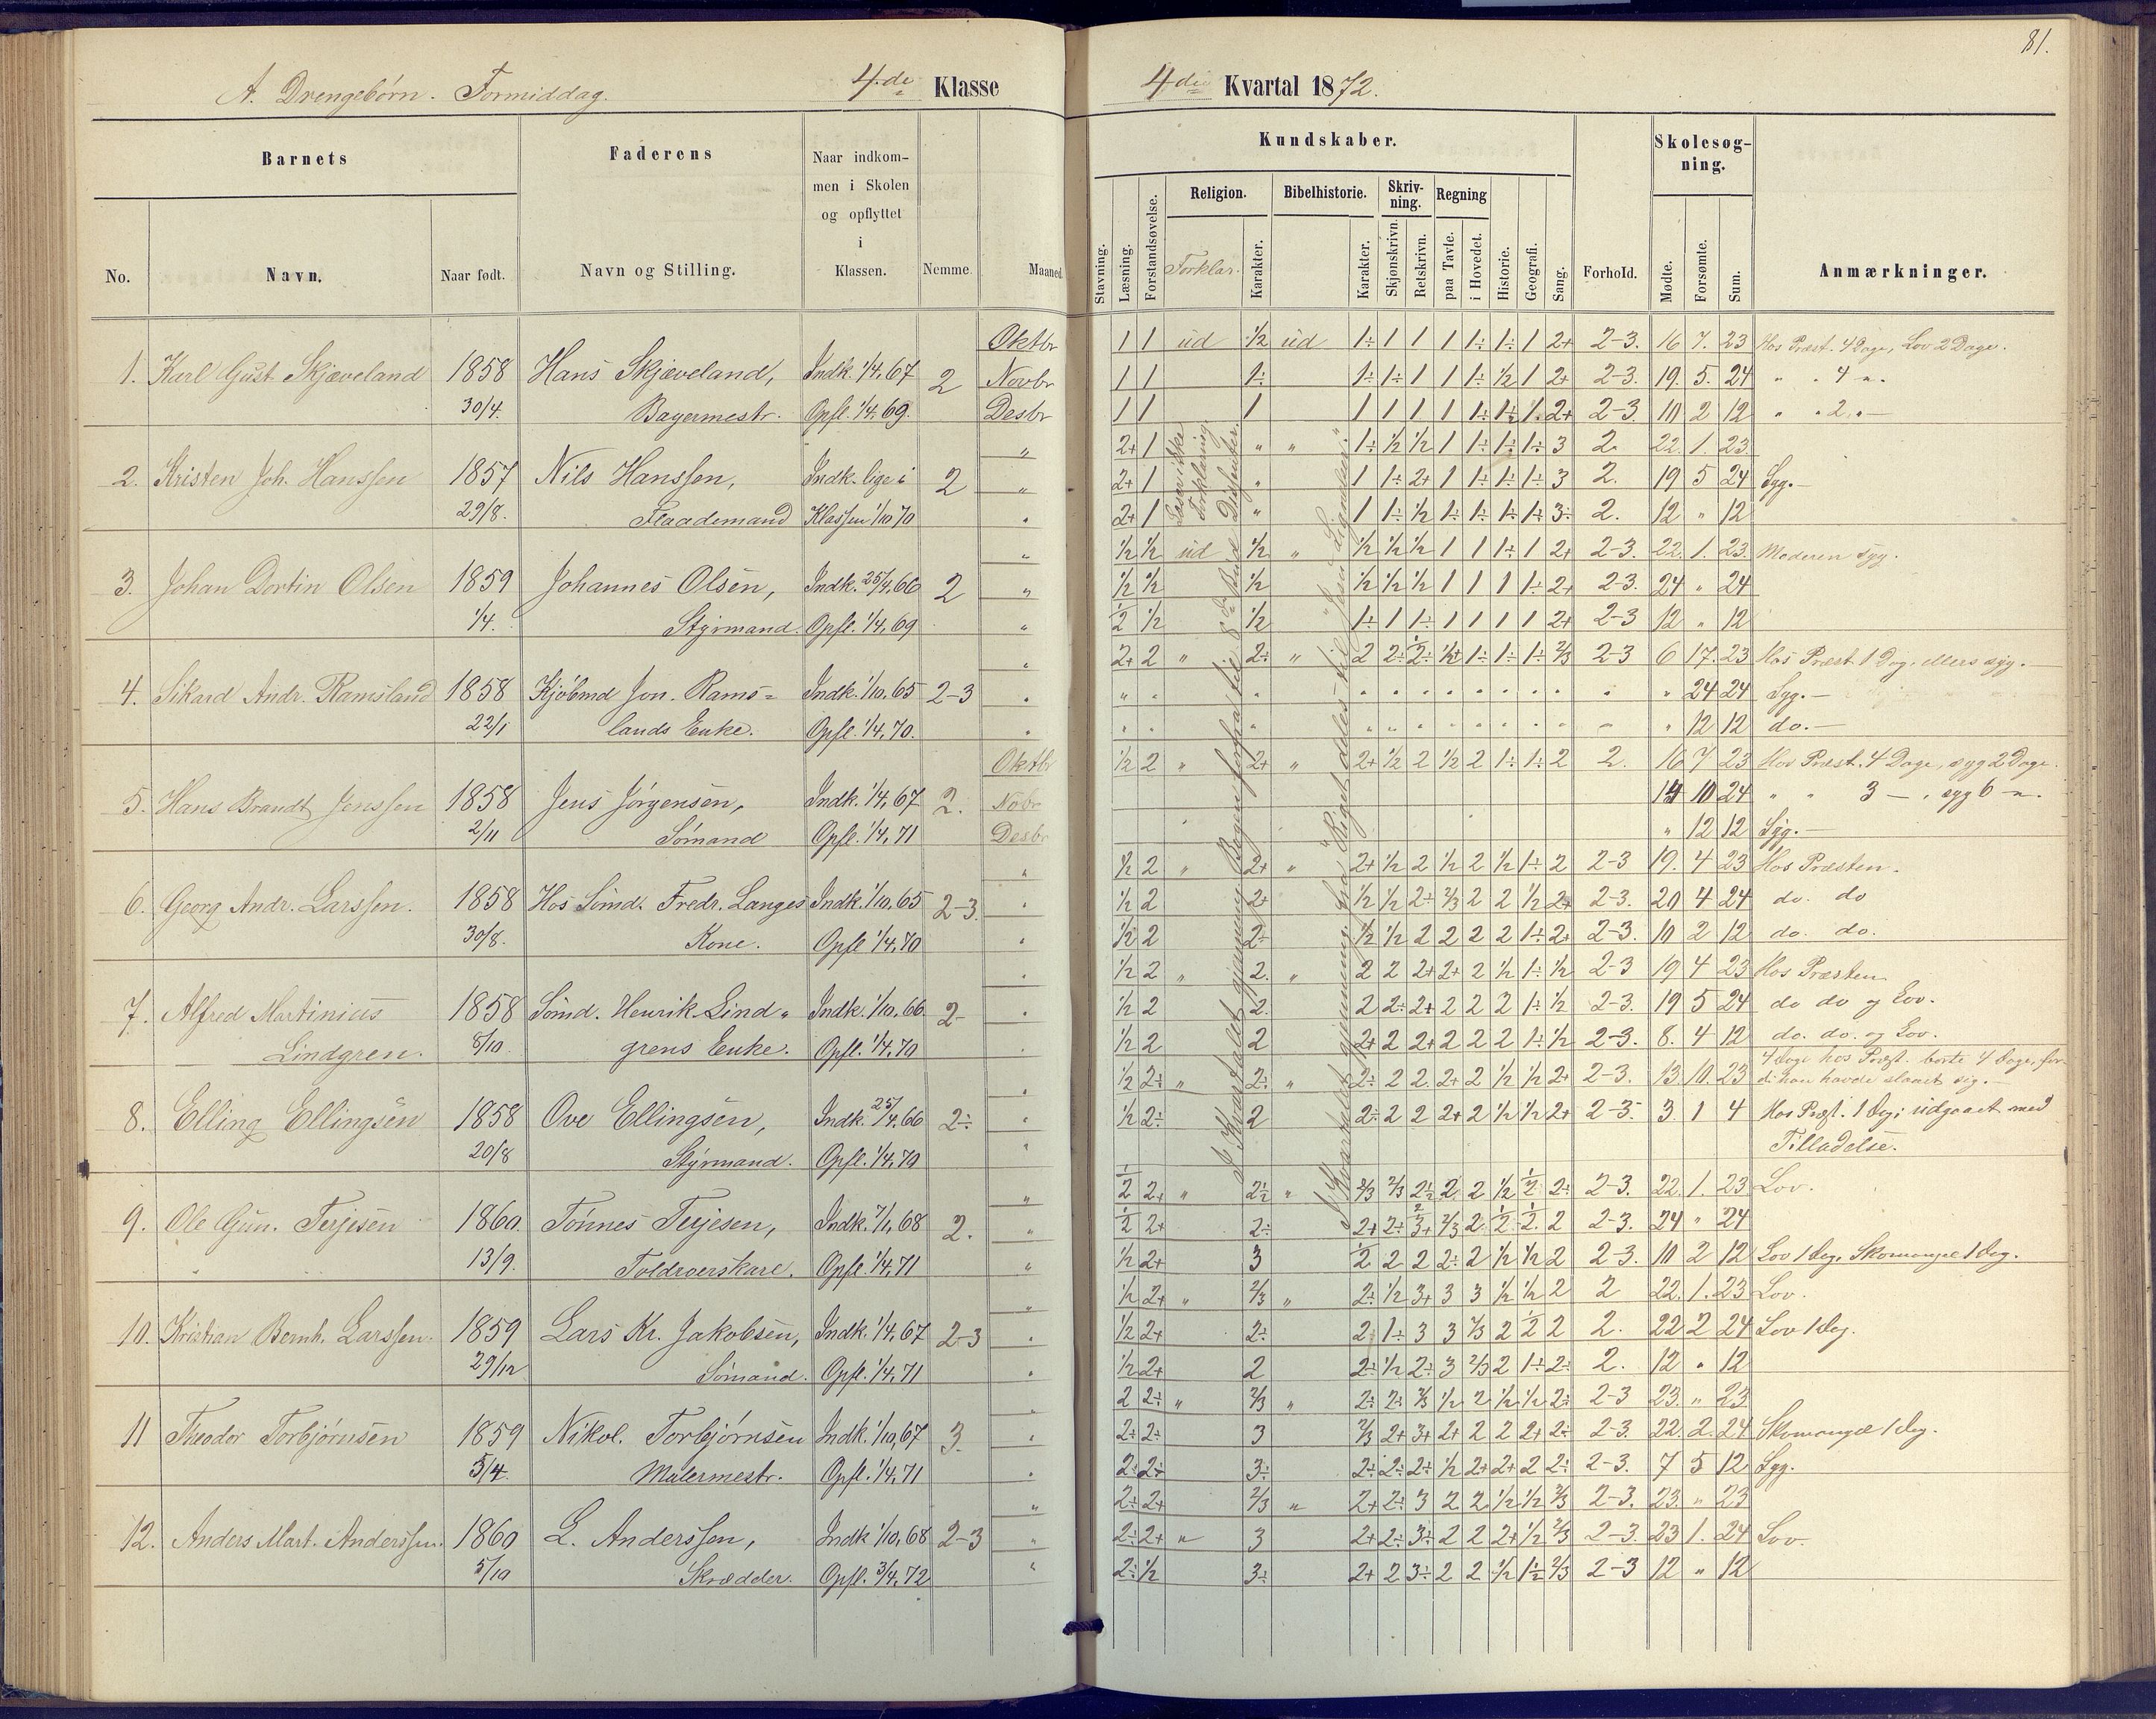 81.
A. Drengebörn. Formiddag. 4.de Klasse
4die Kvartal 1872.
Barnets
Faderens
Naar indkom-
men i Skolen
og opflyttet
i
Klassen.
No. Navn. Naar født. Navn og Stilling. Nemme. Maaned.
Kundskaber.
Skolesøg-
ning.
Religion. Bibelhistorie. Skriv-
ning. Regning
Stavning. Læsning. Forstandsøvelse. Forklar. Karakter. Karakter. Skjønskrivn. Retskrivn. paa Tavle. i Hovedet. Historie. Geografi. Sang. Forhold. Mødte. Forsømte. Sum. Anmærkninger.
Oktbr 1 1 ud 1/2 ud 1÷ 1 1 1 1÷ 1÷ 1 2+ 2-3. 16 7. 23 Hos Præst. 4 Dage, Lov 2 Dage.
1. Karl Gust Skjæveland 1858 Hans Skjæveland, Indk. 1/4, 67 2 Novbr 1 1 1÷ 1÷ 1÷ 1 1 1÷ 1/2 1 2+ 2-3. 19. 5. 24 " " 4 "
30/4. Bagermestr. Opfl. 1/4, 69. Desbr 1 1 1 1 1 1 1 1÷ 1÷ 1 2+ 2-3. 10 2 12 " " 2 "
" 2+ 1 " " 1÷ 1/2 1/2 1 1÷ 1÷ 1÷ 3 2. 22. 1. 23.
2. Kristen Joh. Hanssen 1857 Nils Hanssen, Indk. lige i 2 " 2+ 1 " 1 1÷ 2+ 1 1÷ 1÷ 1÷ 3 2. 19 5 24 Syg.
29/8. Flaademand Klassen 1/10 70 " 2+ 1 " 1 1÷ 1/2 1÷ 1÷ 1÷ 1÷ 3÷ 2. 12 " 12
" 1/2 1/2 ud 1/2 " 1/2 1/2 1/2 1 1 1÷ 1 2+ 2-3. 22. 1. 23. Moderen syg.
3. Johan Dortin Olsen 1859 Johannes Olsen, Indk. 25/4, 66 2 " 1/2 1/2 1/2 1/2 1/2 1/2 1 1 1 1÷ 2+ 2-3. 24 " 24
1/4. Styrmand. Opfl. 1/4, 69 " 1/2 1/2 1/2 1÷ 1 1÷ 1 1 1 1 2+ 2-3 12 " 12
" 2+ 2 " 2÷ " 2 2÷ 1÷ 1÷ 1÷ 2/3 2-3 6 17. 23 Hos Præst 1 Dag, ellers syg.
4. Sikard Andr. Ramsland 1858 Kjöbmd Jon. Rams= Indk. 1/10, 65 2-3 " " " " " 24 24 Syg.
22/1 lands Enke. Opfl. 1/4, 70. " " " " " 12 12 do.
Oktbr 1/2 2 " 2+ " 2+ 1/2 2 1/2 2 1÷ 1÷ 2 2. 16 7 23 Hos Præst. 4 Dage, syg 2 Dage.
5. Hans Brandt Jenssen 1858 Jens Jörgensen, Indk. 1/4, 67 2. Nobr 14 10 24 " " 3 — , syg 6 "
2/11 Sömand Opfl. 1/4, 71 Desbr " 12 12 Syg.
" 1/2 2 " 2+ " 2+ 1/2 2 1/2 2 1/2 1÷ 2 2-3 19. 4 23 Hos Præsten.
6. Georg Andr. Larssen. 1858 Hos Sömd. Fredr. Langes Indk. 1/10, 65 2-3. " 1/2 2 2+ 1/2 1/2 2÷ 2/3 2 2 1/2 2+ 2-3. 20 4 24 do. do
30/8. Kone. Opfl 1/4, 70 " 1/2 2 2÷ 1/2 1/2 2 2 2 2 1÷ 2+ 2-3. 10 2 12 do. do.
" 1/2 2 " 2. " 2 2 2+ 2+ 2 1/2 1÷ 1/2 2-3 19 4 23 Hos Præsten
7. Alfred Martinius 1858 Sömd. Henrik Lind= Indk. 1/10, 66 2- " 1/2 2 2. 2 2÷ 2+ 2 2 2 1÷ 1/2 2-3. 19 5 24 do do og Lov.
Lindgren. 8/10 grens Enke. Opfl. 1/4, 70 " 1/2 2 2 2+ 2 2+ 2 2 2 1÷ 1/2 2-3. 8. 4 12 do. do. og Lov.
" 1/2 2÷ " 2÷ " 2÷ 2 2. 2+ 2 1/2 1/2 2+ 2-3. 13 10. 23 4 Dage hos Præst. borte 4 Dage, for-
di han havde slaaet sig.
8. Elling Ellingsen 1858 Ove Ellingsen, Indk. 25/4, 66 2÷ " 1/2 2÷ 2 2÷ 2 2 2+ 2 1/2 1/2 2+ 2-3. 3. 1 4 Hos Præst. 1 Dag; udgaaet med
20/8 Styrmand. Opfl. 1/4, 70 " Tilladelse.
" 1/2 2+ " " 2/3 2/3 2 2 1/2 1/2 2÷ 2-3. 22. 1. 23 Lov.
9. Ole Gun. Terjesen 1860. Tönnes Terjesen, Indk. 7/1, 68 2. " 1/2 2+ 2÷ 2+ 2÷ 2/3 2 1/2 1/2 2 2-3. 24 " 24
13/9. Toldroerskarl. Opfl. 1/4, 71 " 1/2 2+ 3 1/2 2 2 2÷ 2 1/2 1/2 2 2-3. 10 2 12 Lov 1 Dag, Skomangel 1 Dag.
" 1/2 2+ " 2/3 " 2÷ 1/2 3+ 3 3 1/2 1/2 2 2 22. 1. 23 Lov.
10. Kristian Bernh. Larssen. 1859 Lars Kr. Jakobsen, Indk. 1/4, 67 2-3 " 1/2 2+ 2÷ 2 1÷ 3 3 2/3 2 1/2 2 2. 22 2 24 Lov 1 Dag.
29/12 Sömand. Opfl. 1/4, 71 " 1/2 2+ 2 2÷ 1/2 2÷ 3 2/3 2 1÷ 2÷ 2. 12 " 12
" 2 2÷ " 2/3 " 2÷ 2÷ 2/3 1/2 2 1/2 1/2 2÷ 2-3 23. " 23
11 Theodor Torbjörnsen 1859 Nikol. Torbjörnsen Indk. 1/10, 67 3. " 2÷ 2÷ 3 2/3 2+ 3+ 2+ 2 2 2+ 2÷ 2-3. 22. 2. 24 Skomangel 1 Dag.
5/4. Malermestr. Opfl. 1/4, 71 " 2÷ 2÷ 3÷ 2÷ 2÷ 2÷ 1/2 2+ 2+ 2 2÷ 2-3. 7 5 12 Syg.
" 2÷ 2+ 2/3 " 2+ 2÷ 3 2 2 1/2 1/2 2/3 2-3. 23. " 23
12. Anders Mart. Anderssen. 1860 L. Anderssen, Indk 1/10, 68 2-3 " 2÷ 2+ " 3 2+ 2÷ 3÷ 2 2 2+ 1/2 2/3 2-3. 23 1. 24 Lov.
5/10 Skrædder. Opfl. 3/4, 72 " 2÷ 1/2 3÷ 2+ 2 3÷ 2 2 1/2 2/3 2-3 12 " 12
Læser ikke
Forklaring
Disenter.
I Kvartalet gjennemg. Bogen forfra til 8de Bud
I Kvartalet gjennemg. fra "Riget deles" til Jesu Lignelser.